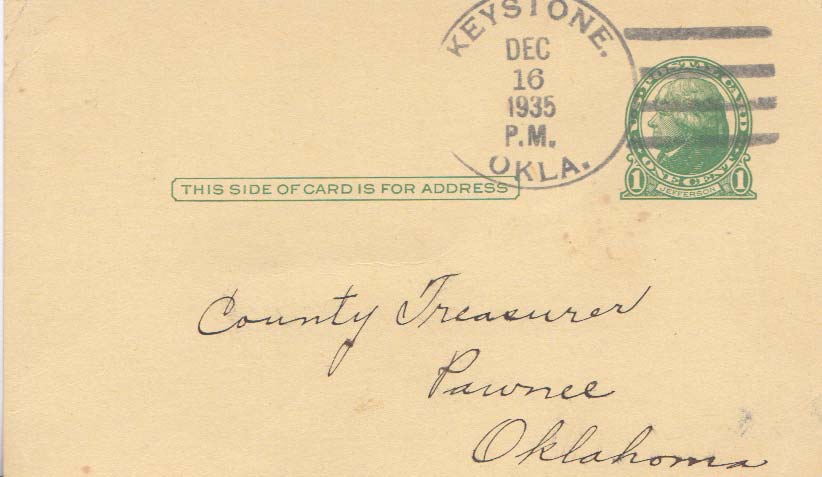 KEYSTONE,
DEC
16
1935
P.M.
OKLA.
U.S. POSTAL CARD
ONE CENT
1 JEFFERSON 1
THIS SIDE OF CARD IS FOR ADDRESS
County Treasurer
Pawnee
Oklahoma